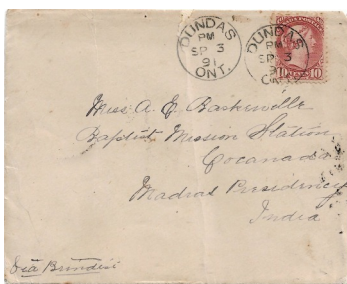 DUNDAS
PM
SP 3
91
ONT.
DUNDAS
PM
SP 3
91
10 CENTS 10
Miss A. E. Baskerville
Baptist Mission Station
Cocanada
Madras Presidency
India
Via Brindisi